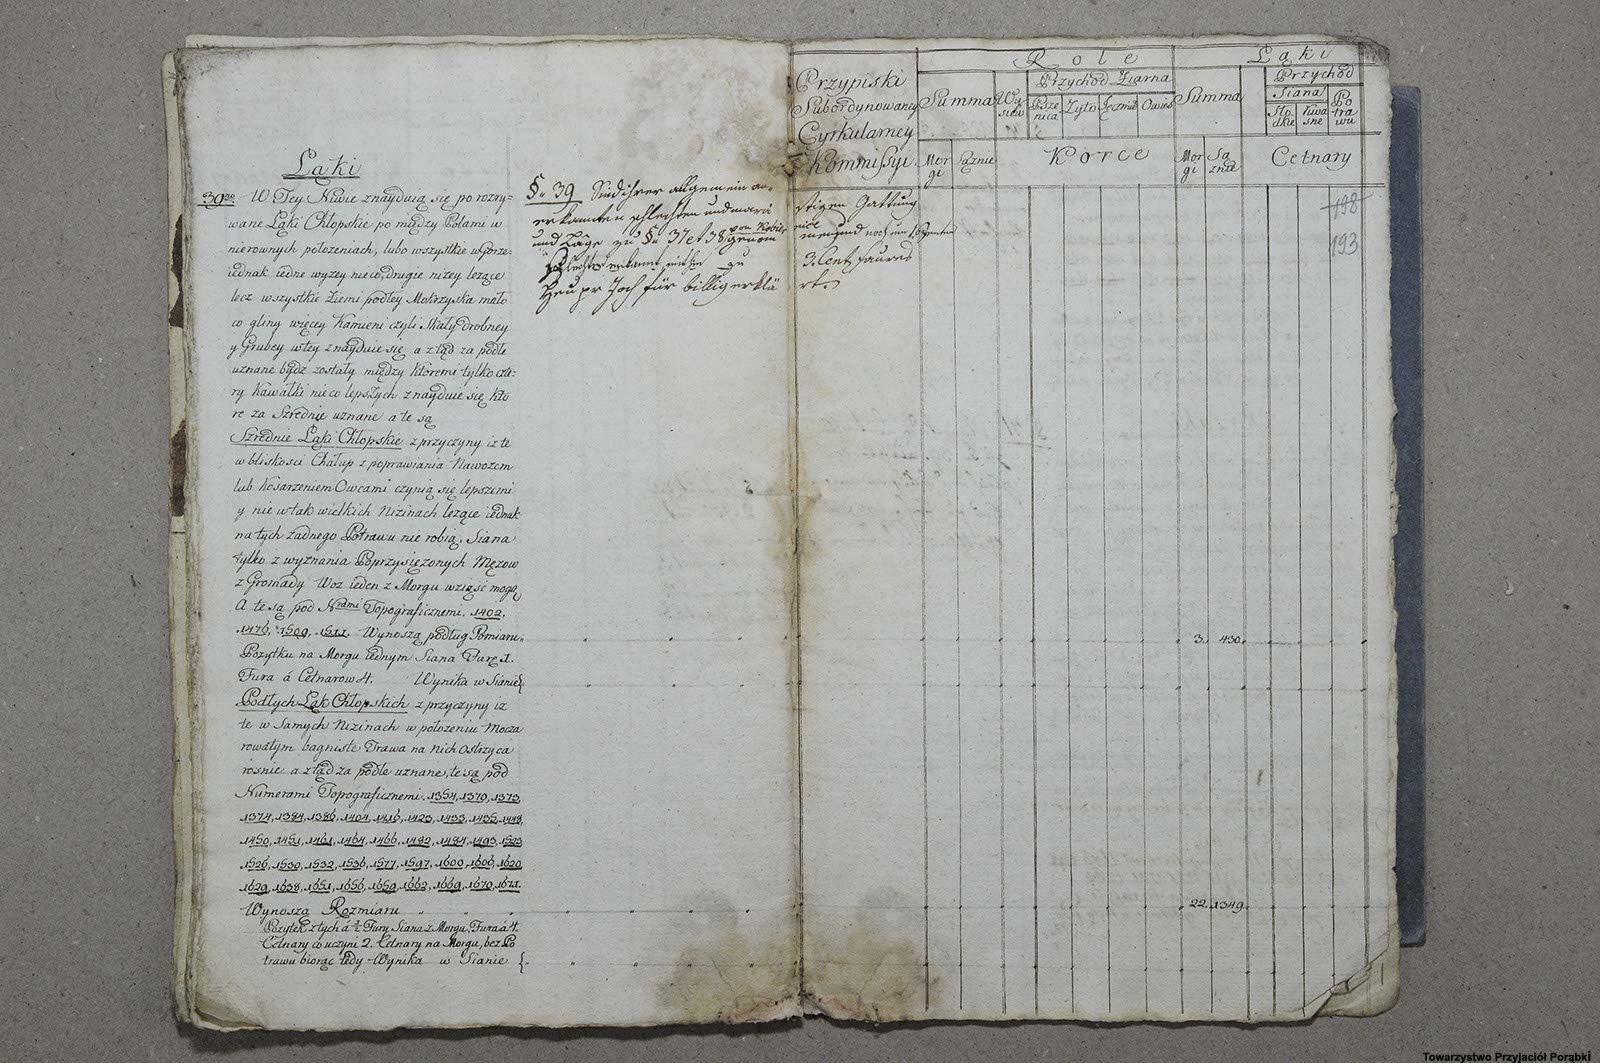 Łąki
39no W Tey Niwie znayduią się porozry=
wane Łąki Chłopskie po między Polami w
nierownych położeniach, lubo wszystkie w Gorze
iednak iedne wyzey nieco, drugie nizey lezące
lecz wszystkie Ziemi podłey Mokrzyska mało
co gliny więcey Kamieni czyli Skały drobney
y Grubey w tey znayduie się a ztąd za podłe
uznane bydz zostały między ktoremi tylko czte=
ry Kawałki nieco lepszych znayduie się kto
re za Szrednie uznane a te są
Szrednie Łąki Chłopskie z przyczyny iz te
w bliskosci Chałup z poprawiania Nawozem
lub Kosarzeniem Owcami czynią się lepszemi
y nie w tak wielkich Nizinach lezące iednak
na tych zadnego Potrawu nie robią, Siana
tylko z wyznania Poprzysięzonych Męzow
z Gromady Woz ieden z Morgu wziąść mogą
A te są pod Nrami Topograficznemi. 1402,
1476, 1509, 1511. Wynoszą podług Pomiaru
Pozytku na Morgu iednym Siana Furę 1.
Fura á Cetnarow 4. Wynika w Sianie{
Podłych Łąk Chłopskich z przyczyny iz
te w Samych Nizinach w położeniu Mocza
rowatym bagniste Trawa na nich ostrzyca
rosnie a ztąd za podłe uznane, te są pod
Numerami Topograficznemi. 1354, 1370, 1373,
1374, 1384, 1386, 1404, 1416, 1423, 1433, 1435, 1448,
1450, 1451, 1461, 1464, 1466, 1482, 1484, 1493, 1523
1526, 1530, 1532, 1536, 1577, 1597, 1600, 1606, 1620
1629, 1638, 1651, 1656, 1659, 1662, 1669, 1670, 1671.
Wynoszą Rozmiaru
Pozytek z tych á 1/2 Fury Siana z Morgu, Fura á 4.
Cetnary co uczyni 2. Cetnary na Morgu, bez Po
trawu biorąc tedy Wynika w Sianie {
§. 39 Sind ihrer allgemein an=
erkannten schlechten und
und Lage zu §. 37 et 38 genom
schlechter erkannt mithin zu
Heu pr Joch für billig erklä
stigen Gattung
men und noch um
2. Cent saures
rt.
Przypiski
Subordynowaney
Cyrkularney
Kommissyi
Role
Summa
Wy
siew
Przychod Ziarna
Psze
nica
Zyto
Jęczmień
Owies
Mor
gi
Sąznie
Korce
Łąki
Summa
Przychod
Siana
Sło
dkie
Kwa
sne
Po
tra
wu
Mor
gi
Są
znie
Cetnary
198
193
3. 430.
22. 1349.
Towarzystwo Przyjaciół Porąbki